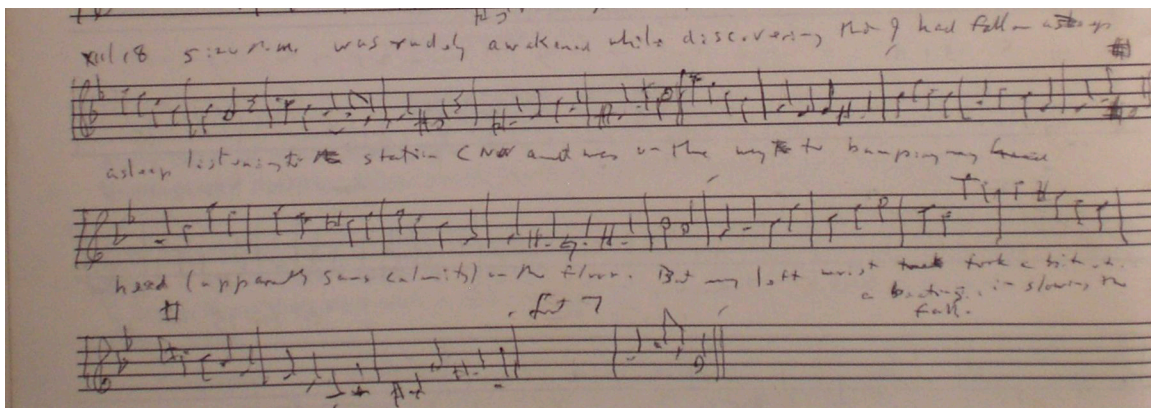 xii/18 5:20 P.M. was rudely awakened while discovering that I had fallen asleep
asleep listening to station CNN and was on the way to bumping my
head (apparently sans calamity) on the floor. But my left wrist took a bit of
a beating in slowing the
fall.
7